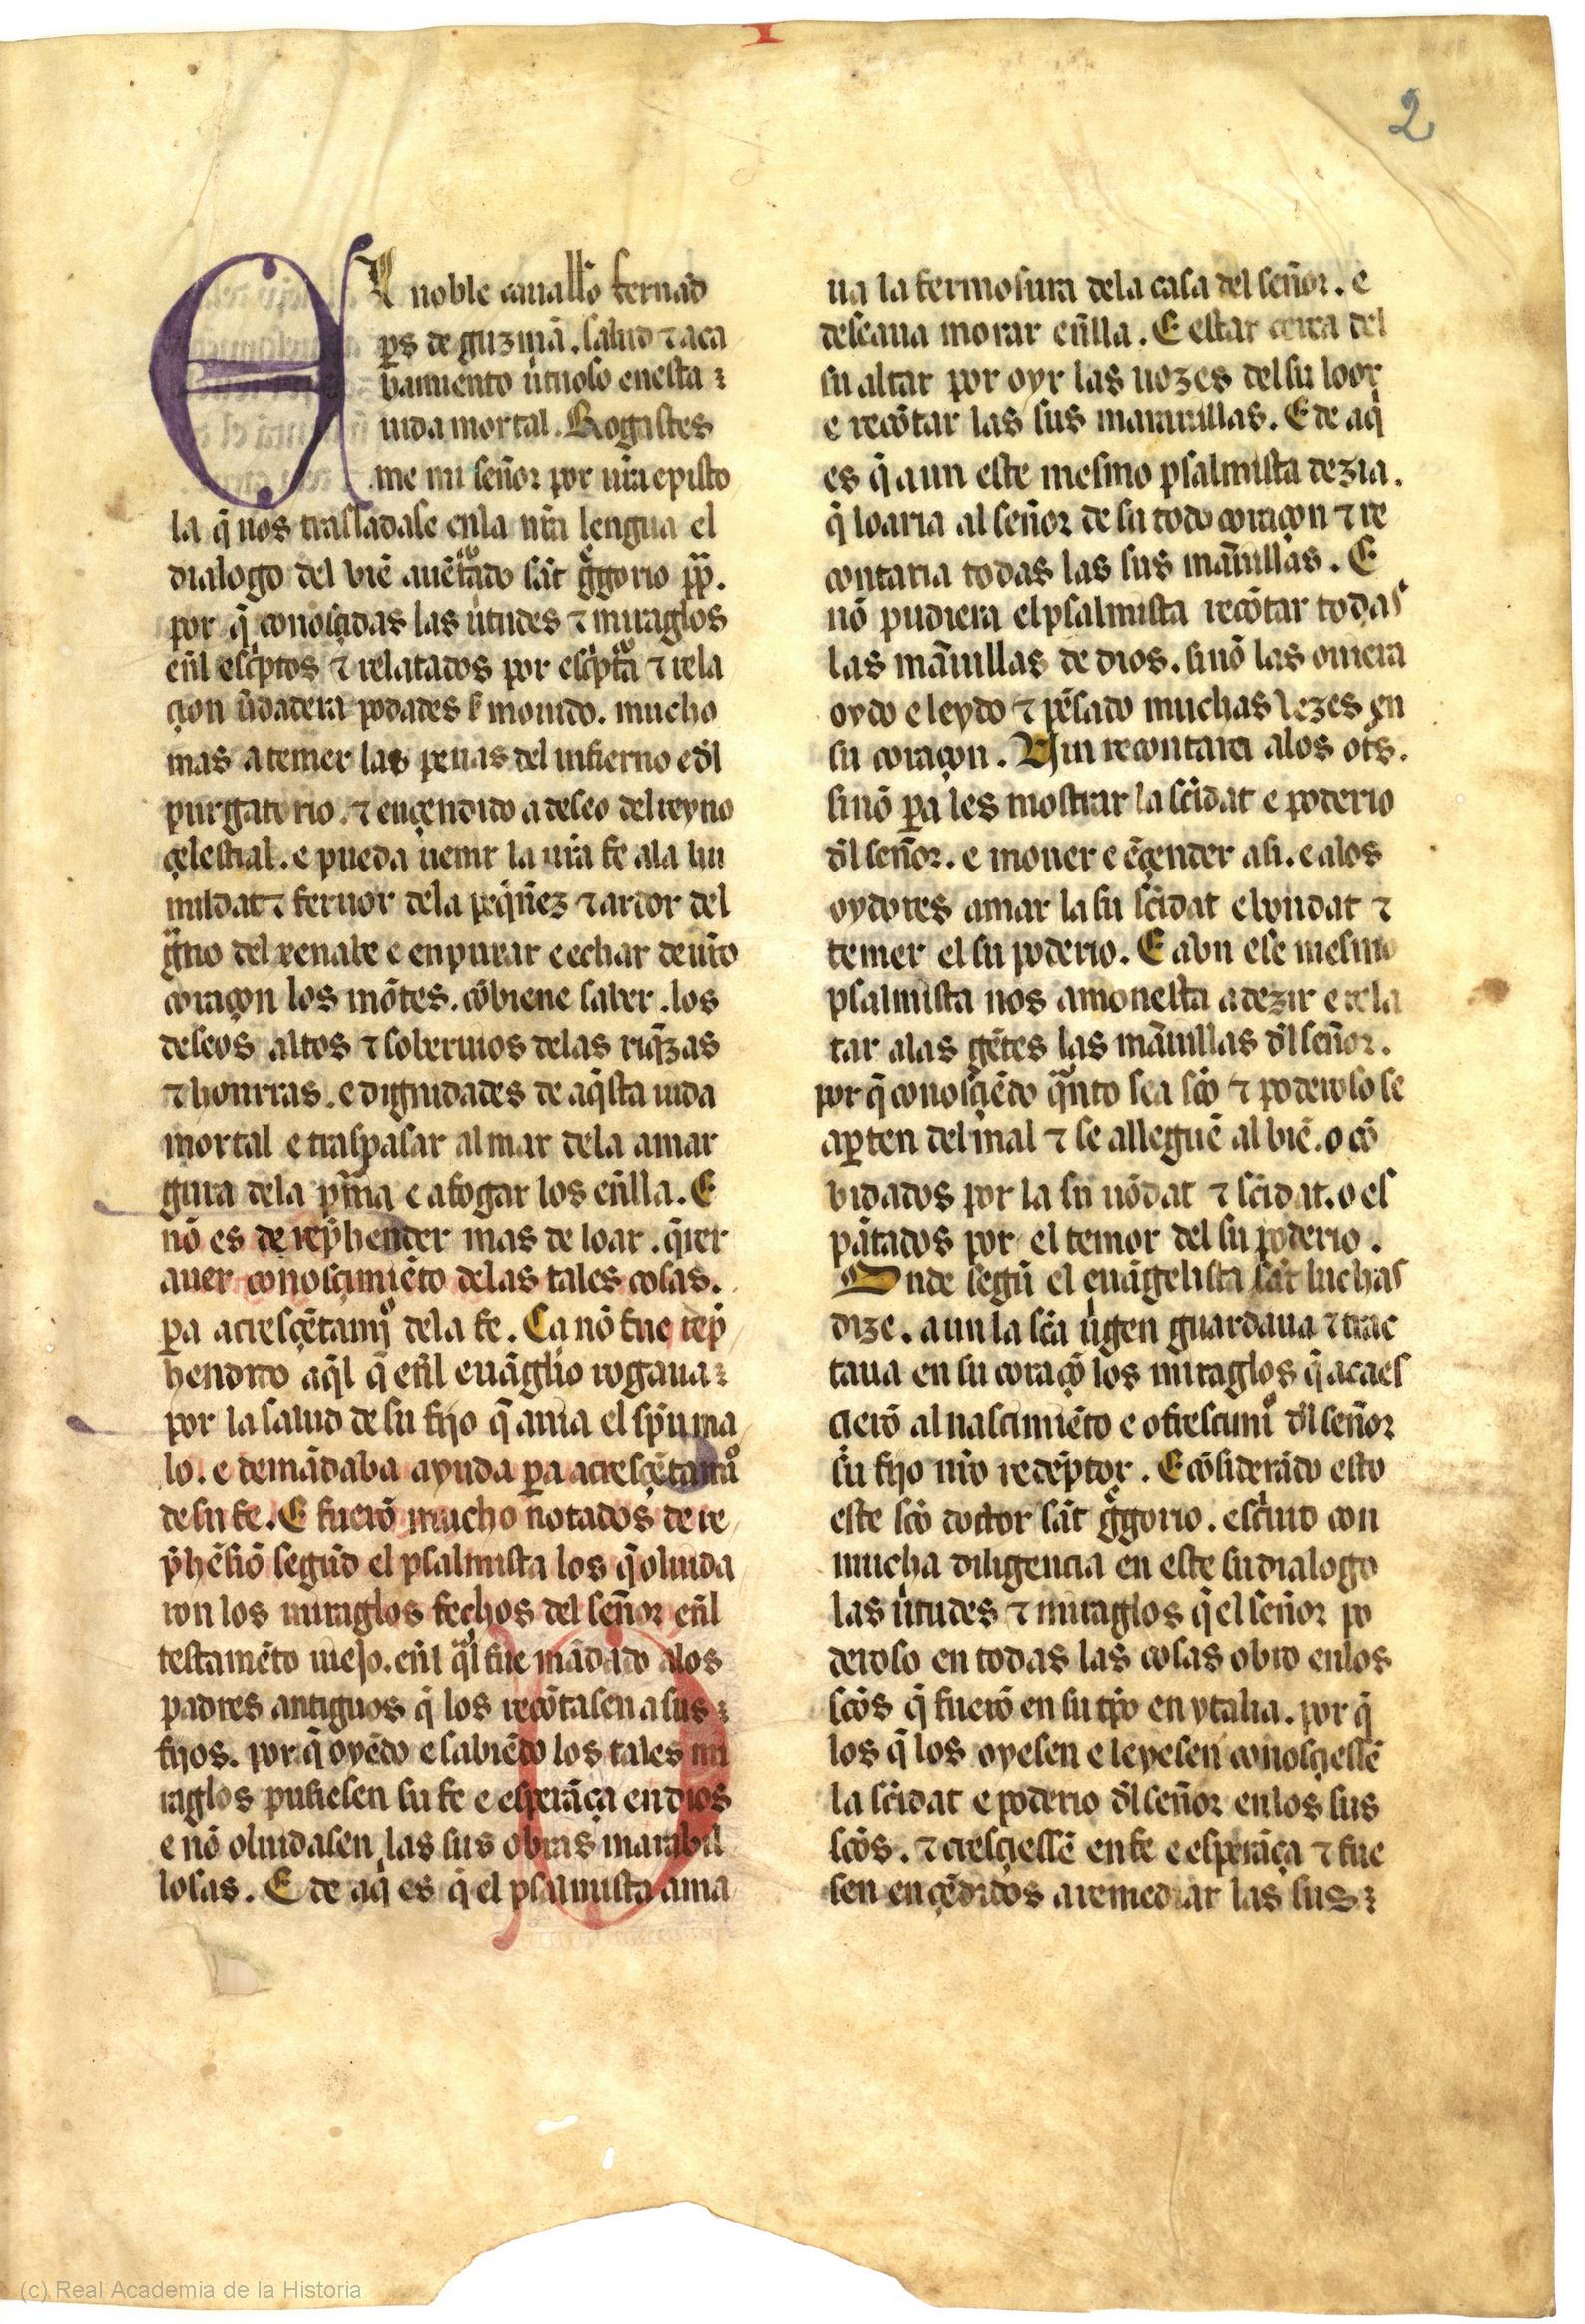 I
2
Al noble cauallo fernãd
ꝑs de guzmã. salud ⁊ aca
bamiento u̓tuoso enesta
uida mortal. Rogastes
me mi señor por ur̃a episto
la q̃ uos trasladase enla nr̃a lengua el
dialogo del biẽ auẽtᵃdo sãt gͤgorio pp̃.
por q̃ conosçidas las u̓tudes ⁊ miraglos
eñl esc̓ptos ⁊ relatados por esc̓ptᵃ ⁊ rela
çion u̓dadera podades mouido. mucho
mas a temer las penas del infierno e d̃l
purgatorio. ⁊ ençendido a deseo del reyno
çelestial. e pueda uenir la ur̃a fe ala hu
mildat ⁊ feruor dela peq̃ñez ⁊ ardor del
gᵃno del xenabe e enpuxar e echar de ur̃o
coraçon los mõtes. cõbiene saber. los
deseos altos ⁊ soberuios delas riq̃zas
⁊ honrras. e dignidades de aq̃sta uida
mortal e traspasar al mar dela amar
gura dela pm̃ia e afogar los eñlla. E
nõ es de rep̃hender mas de loar. q̃rer
auer conosçimiẽto delas tales cosas.
ꝑa acresçẽtamjº dela fe. Ca nõ fue rep̃
hendido aq̃l q̃ eñl euãglio rogaua
por la salud de su fijo q̃ auia el sp̃u ma
lo. e demãdaba ayuda ꝑa acresçẽtamjº
de su fe. E fuerõ mucho notados de re
p̃hẽsiõ segũd el psalmista los q̃ oluida
ron los miraglos fechos del señor eñl
testamẽto uiejo. eñl qᵃl fue mãdado alos
padres antiguos q̃ los recõtasen a sus
fijos. por q̃ oyẽdo e sabiẽdo los tales mi
raglos pusiesen su fe e esperãça en dios
e nõ oluidasen las sus obras marabil
losas. E de aq̃ es q̃ el psalmista ama
ua la fermosura dela casa del señor. e
deseaua morar eñlla. E estar cerca del
su altar por oyr las uozes del su loor
e recõtar las sus marauillas. E de aq̃
es q̃ aun este mesmo psalmista dezia.
q̃ loaria al señor de su todo coraçon ⁊ re
contaria todas las sus mãuillas. E
nõ pudiera el psalmista recõtar todas
las mãuillas de dios. sinõ las ouiera
oydo e leydo ⁊ pẽsado muchas vezes en
su coraçon. Nin recontara alos ot̃s.
sinõ ꝑa les mostrar la sc̃idat e poderio
d̃l señor. e mouer e ẽçender asi. e alos
oydores amar la su sc̃idat e bondat ⁊
temer el su poderio. E abn ese mesmo
psalmista nos amonesta a dezir e rela
tar alas gẽtes las mãuillas d̃l señor.
por q̃ conosçiẽdo qᵃnto sea sc̃o ⁊ poderoso se
aꝑten del mal ⁊ se alleguẽ al biẽ. o cõ
bidados por la su uõdat ⁊ sc̃idat. o es
pãtados por el temor del su poderio.
Onde segũ el euãgelista sãt luchas
dize. aun la sc̃a u̓gen guardaua ⁊ trac
taua en su coraçõ los miraglos q̃ acaes
cierõ al nascimiẽto e ofrescimjº d̃l señor
su fijo nr̃o redẽptor. E cõsiderãdo esto
este sc̃o doctor sãt gͤgorio. esc̓iuio con
mucha diligencia en este su dialogo
las u̓tudes ⁊ miraglos q̃ el señor po
deroso en todas las cosas obro enlos
sc̃os q̃ fuerõ en su tp̃o en ytalia. por q̃
los q̃ los oyesen e leyesen conosçiessẽ
la sc̃idat e poderio d̃l señor enlos sus
sc̃os. ⁊ cresçiessẽ en fe e esperãça ⁊ fue
sen ençẽdidos a remediar las sus
(c) Real Academia de la Historia